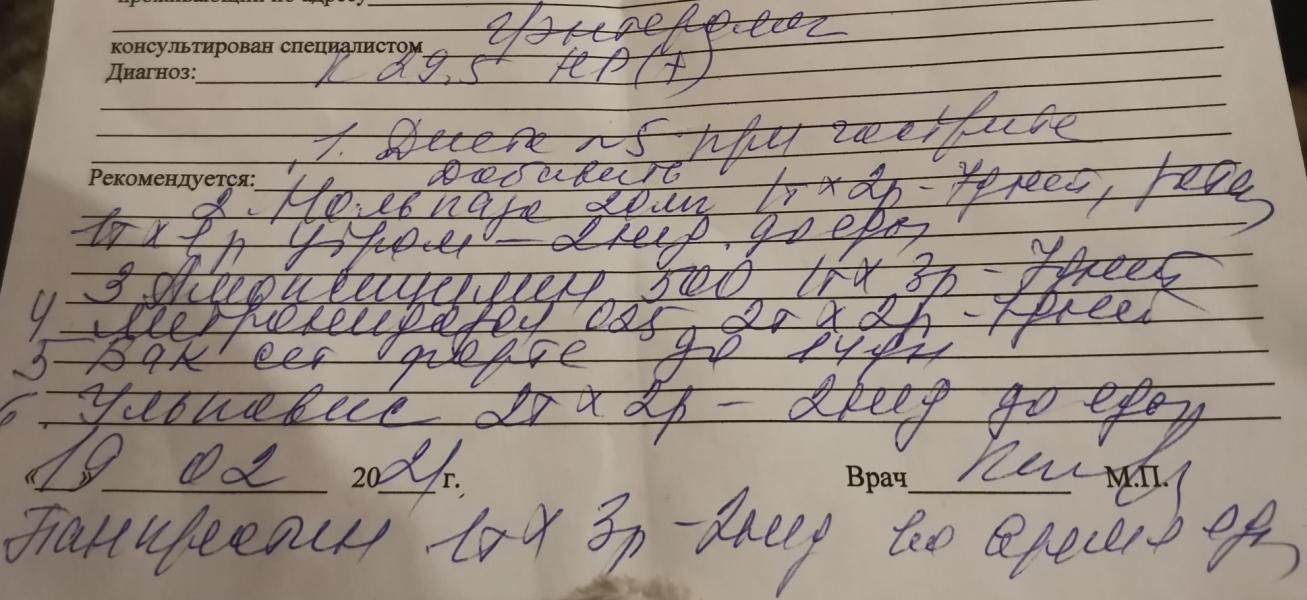 проживающий по адресу
консультирован специалистом гастроэнтеролог
Диагноз: К 29,5 НР(+)
1. Диета №5 при гастрите
Рекомендуется: добавить
2. Нольпаза 20мг 1т х 2р - 7дней,
1т х 1р утром - 2нед. до еды
3 Амоксициллин 500 1т х 3р - 7дней
4 Метронидазол 025 2т х 2р - 7дней
5 Бак сет форте до 14дн
6. Ульпавис 2т х 2р - 2нед до еды
«19» 02 2024 г. Врач М.П.
Панкреатин 1т х 3р - 2нед во время еды